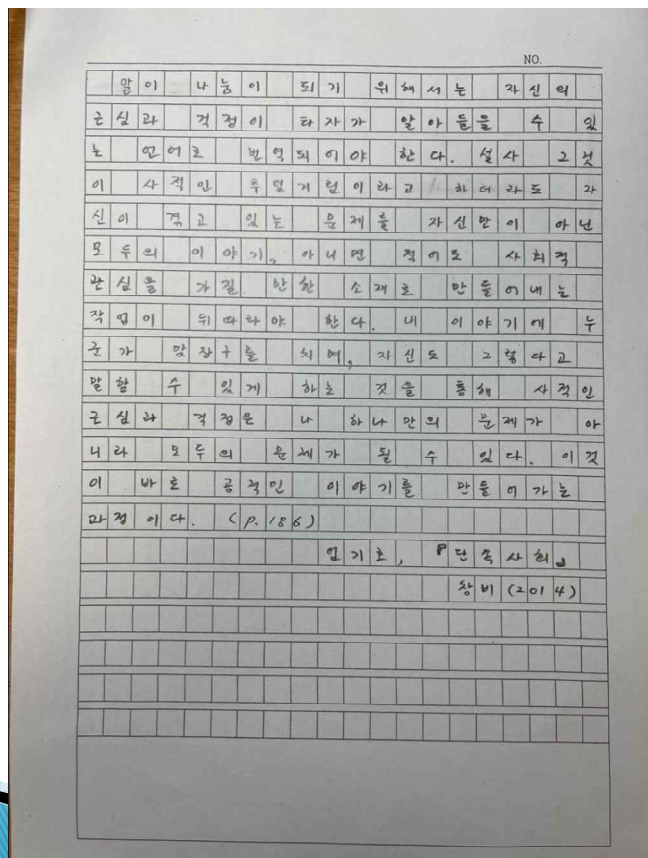 NO.
말이 나눔이 되기 위해서는 자신의
근심과 걱정이 타자가 알아들을 수 있
는 언어로 번역되어야 한다. 설사 그것
이 사적인 푸념거림이라고 하더라도 자
신이 겪고 있는 문제를 자신만이 아닌
모두의 이야기, 아니면 적어도 사회적
관심을 가질 만한 소재로 만들어내는
작업이 뒤따라야 한다. 내 이야기에 누
군가 맞장구를 치며, 자신도 그렇다고
말할 수 있게 하는 것을 통해 사적인
근심과 걱정은 나 하나만의 문제가 아
니라 모두의 문제가 될 수 있다. 이것
이 바로 공적인 이야기를 만들어가는
과정이다. (p.186)
엄기호, 『단속사회』
창비(2014)